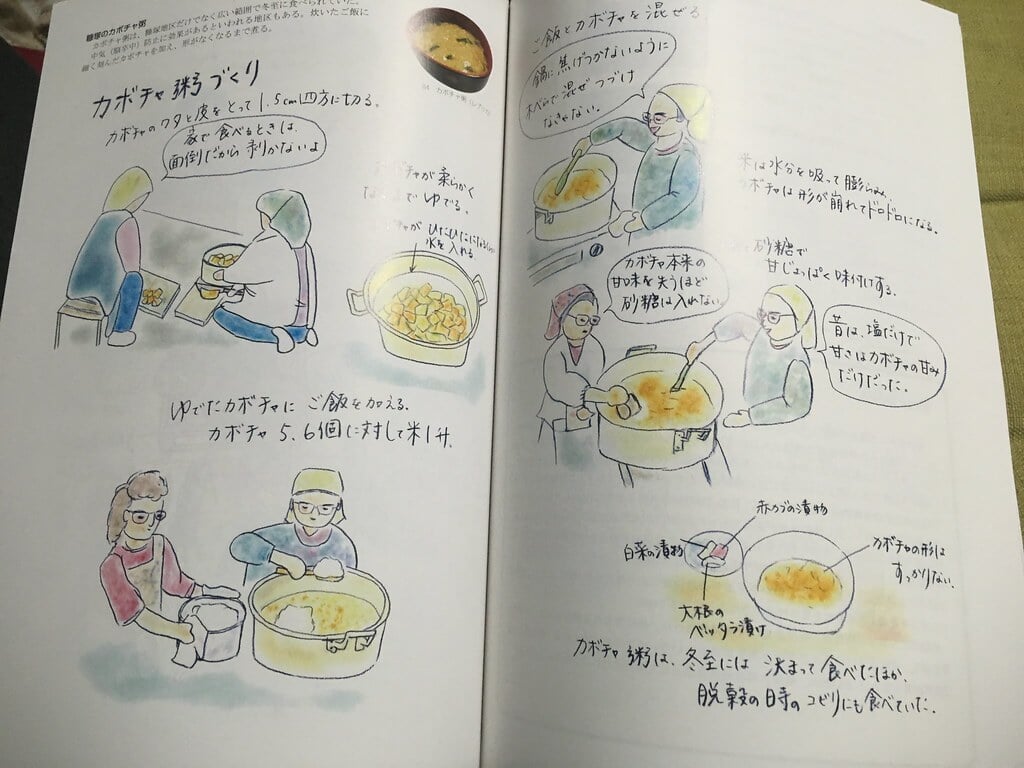 糠塚のカボチャ粥
カボチャ粥は、糠塚地区だけでなく広い範囲で冬至に食べられていた。
中気（脳卒中）防止に効果があるといわれる地区もある。炊いたご飯に
細く刻んだカボチャを加え、形がなくなるまで煮る。
カボチャ粥（レプリカ）
カボチャ粥づくり
カボチャのワタと皮をとって1.5cm四方に切る。
家で食べるときは、
面倒だから剥かないよ
ボチャが柔らかく
なるまでゆでる。
ひたひたになるくらい
水を入れる
ゆでたカボチャにご飯を加える。
カボチャ5、6個に対して米1升。
ご飯とカボチャを混ぜる
鍋に焦げつかないように
木べらで混ぜつづけ
なきゃない。
米は水分を吸って膨らみ、
カボチャは形が崩れてドロドロになる。
砂糖で
甘じょっぱく味付けする。
カボチャ本来の
甘味を失うほど
砂糖は入れない
昔は、塩だけで
甘さはカボチャの甘み
だけだった。
赤カブの漬物
白菜の漬物
大根の
ベッタラ漬け
カボチャの形は
すっかりない。
カボチャ粥は、冬至には決まって食べたほか、
脱穀の日時のコビリにも食べていた。